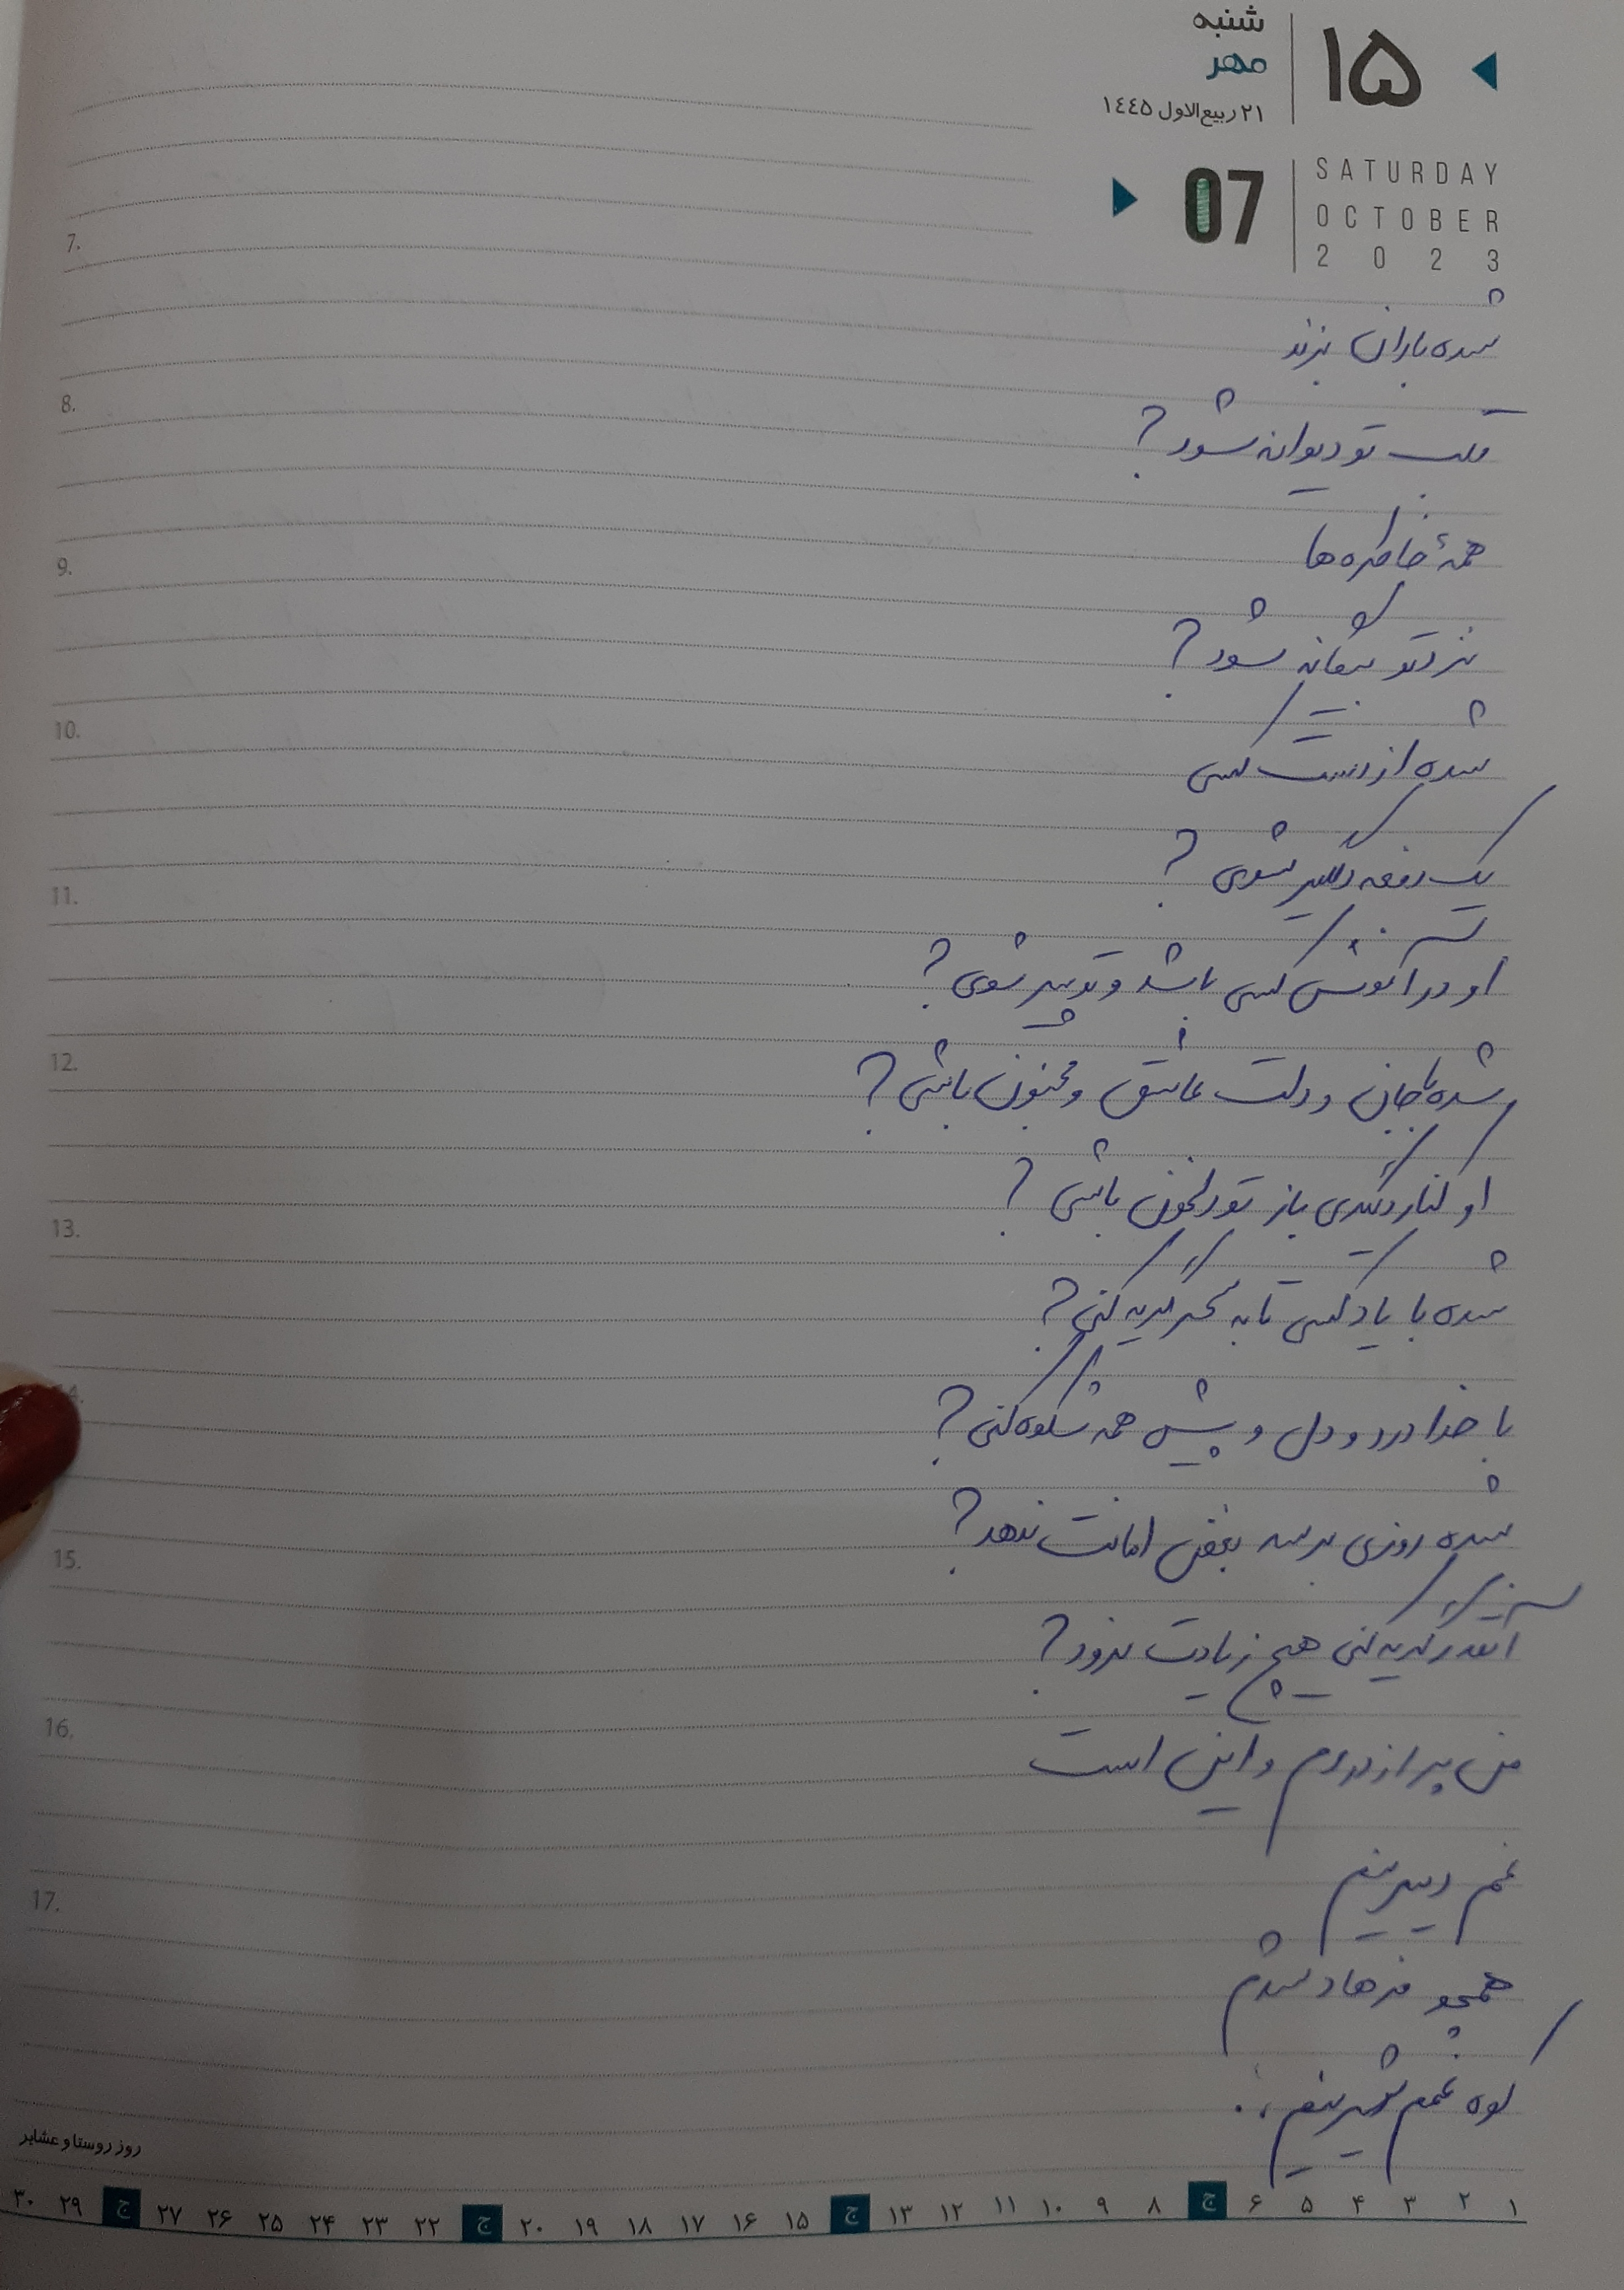 شنبه
۱۵
مهر
۲۱ ربیع‌الاول ۱۴۴۵
07
SATURDAY
OCTOBER
2023
شده باران بزند
قلب تو دیوانه شود؟
همهٔ خاطره‌ها
نزد تو بیگانه شود؟
شده از دست کسی
یک دفعه دلگیر شوی؟
او در آغوش کسی باشد و تو پیر شوی؟
شده با جان و دلت عاشق و مجنون باشی؟
او کنار دگری باز تو دلخون باشی؟
شده با یاد کسی تا به سحر گریه کنی؟
با خدا درد و دل و پیش همه شکوه کنی؟
شده روزی برسد بغض امانت ندهد؟
آنقدر گریه کنی هیچ ز یادت نرود؟
من پر از دردم و این است
غم دیرینم
همچو فرهاد شدم
کوه غمم شیرینم..
7.
8.
9.
10.
11.
12.
13.
14.
15.
16.
17.
روز روستا و عشایر
۱ ۲ ۳ ۴ ۵ ۶ ج ۸ ۹ ۱۰ ۱۱ ۱۲ ۱۳ ج ۱۵ ۱۶ ۱۷ ۱۸ ۱۹ ۲۰ ج ۲۲ ۲۳ ۲۴ ۲۵ ۲۶ ۲۷ ج ۲۹ ۳۰